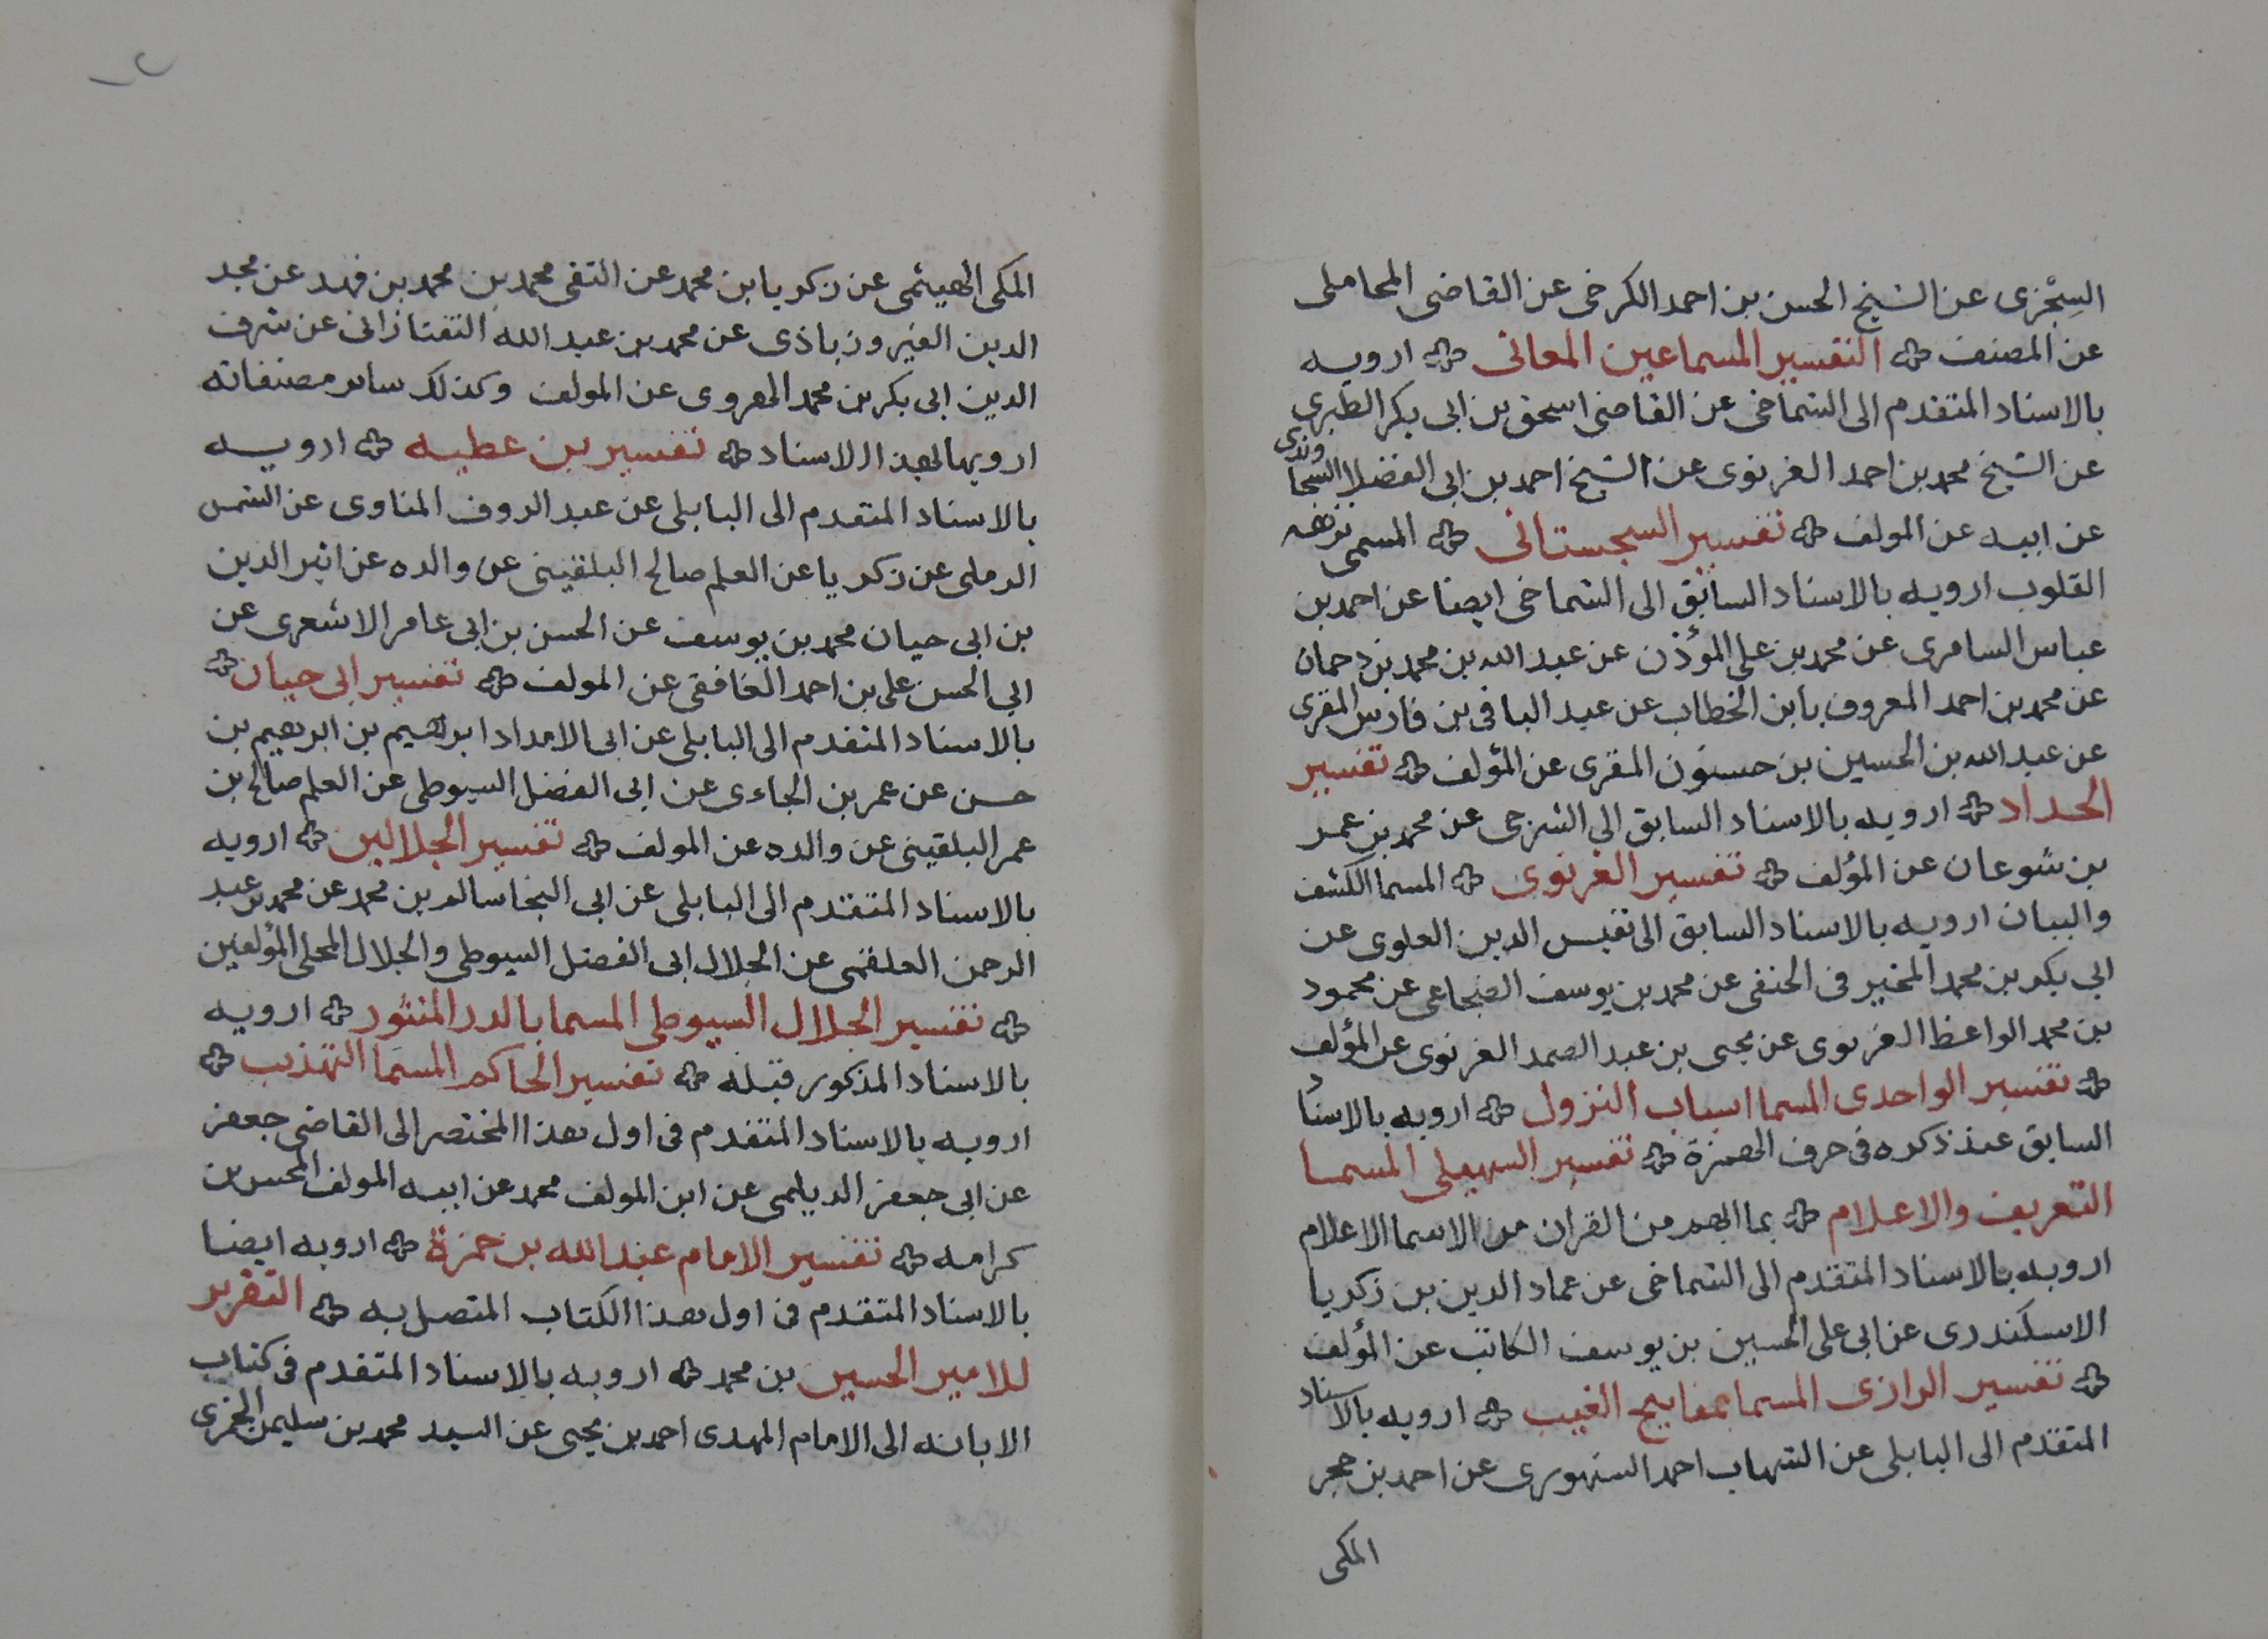 السِجْزى عن الشيخ الحسن بن احمد الكرخى عن القاضى المحاملى
عن المصنف ۞ التفسير المسما عين المعانى ۞ ارويه
بالاسناد المتقدم الى الشماخى عن القاضى اسحق بن ابى بكر الطبرى
عن الشيخ محمد بن احمد الغزنوى عن الشيخ احمد بن ابى الفضل السجاوندى
عن ابيه عن المولف ۞ تفسير السجستانى ۞ المسمى بنزهه
القلوب ارويه بالاسناد السابق الى الشماخى ايضا عن احمد بن
عباس السامرى عن محمد بن على المؤذن عن عبد الله بن محمد بن دحمان
عن محمد بن احمد المعروف بابن الخطاب عن عبد الباقى بن فارس المقرى
عن عبد الله بن الحسين بن حسنون المقرى عن المؤلف ۞ تفسير
الحداد ۞ ارويه بالاسناد السابق الى الشرجى عن محمد بن عمر
بن شوعان عن المؤلف ۞ تفسير الغزنوى ۞ المسما الكشف
والبيان ارويه بالاسناد السابق الى نفيس الدين العلوى عن
ابى بكر بن محمد الحنفى عن محمد بن يوسف عن محمود
بن محمد الواعظ الغزنوى عن يحيى بن عبد الصمد الغزنوى عن المؤلف
۞ تفسير الواحدى المسما اسباب النزول ۞ ارويه بالاسنا
السابق عند ذكره فى حرف الهمزة ۞ تفسير السهيلى المسما
التعريف والاعلام ۞ بما ابهم من القران من الاسما الاعلام
ارويه بالاسناد المتقدم الى الشماخى عن عماد الدين بن زكريا
الاسكندرى عن ابى على الحسين بن يوسف الكاتب عن المؤلف
۞ تفسير الرازى المسما بمفاتيح الغيب ۞ ارويه بالاسناد
المتقدم الى البابلى عن الشهاب احمد السنهورى عن احمد بن حجر
المكى
المكى الهيثمى عن زكريا بن محمد عن التقى محمد بن محمد بن فهد عن مجد
الدين الفيروزباذى عن محمد بن عبد الله التفتازانى عن شرف
الدين ابى بكر بن محمد الهروى عن المولف وكذلك ساير مصنفاته
ارويها بهذا الاسناد ۞ تفسير بن عطيه ۞ ارويه
بالاسناد المتقدم الى البابلى عن عبد الروف المناوى عن الشمس
الرملى عن زكريا عن العلم صالح البلقينى عن والده عن اثير الدين
بن ابى حيان محمد بن يوسف عن الحسن بن ابى عامر الاشعرى عن
ابى الحسن على بن احمد الغافقى عن المولف ۞ تفسير ابى حيان ۞
بالاسناد المتقدم الى البابلى عن ابى الامداد ابراهيم بن ابرهيم بن
حسن عن عمر بن الجاءى عن ابى الفضل السيوطى عن العلم صالح بن
عمر البلقينى عن والده عن المولف ۞ تفسير الجلالين ۞ ارويه
بالاسناد المتقدم الى البابلى عن ابى النجا سالم بن محمد عن محمد بن عبد
الرحمن العلقمى عن الجلال ابى الفضل السيوطى والجلال المحلى المؤلفين
۞ تفسير الجلال السيوطى المسما بالدر المنثور ۞ ارويه
بالاسناد المذكور قبله ۞ تفسير الحاكم المسما التهذيب ۞
ارويه بالاسناد المتقدم فى اول هذا المختصر الى القاضى جعفر
عن ابى جعفر الديلمى عن ابن المولف محمد عن ابيه المولف المحسن بن
كرامه ۞ تفسير الامام عبد الله بن حمزة ۞ ارويه ايضا
بالاسناد المتقدم فى اول هذا الكتاب المتصل به ۞ التقرير
للامير الحسين بن محمد ۞ ارويه بالاسناد المتقدم فى كتاب
الابانه الى الامام المهدى احمد بن يحيى عن السيد محمد بن سليمن الجزى